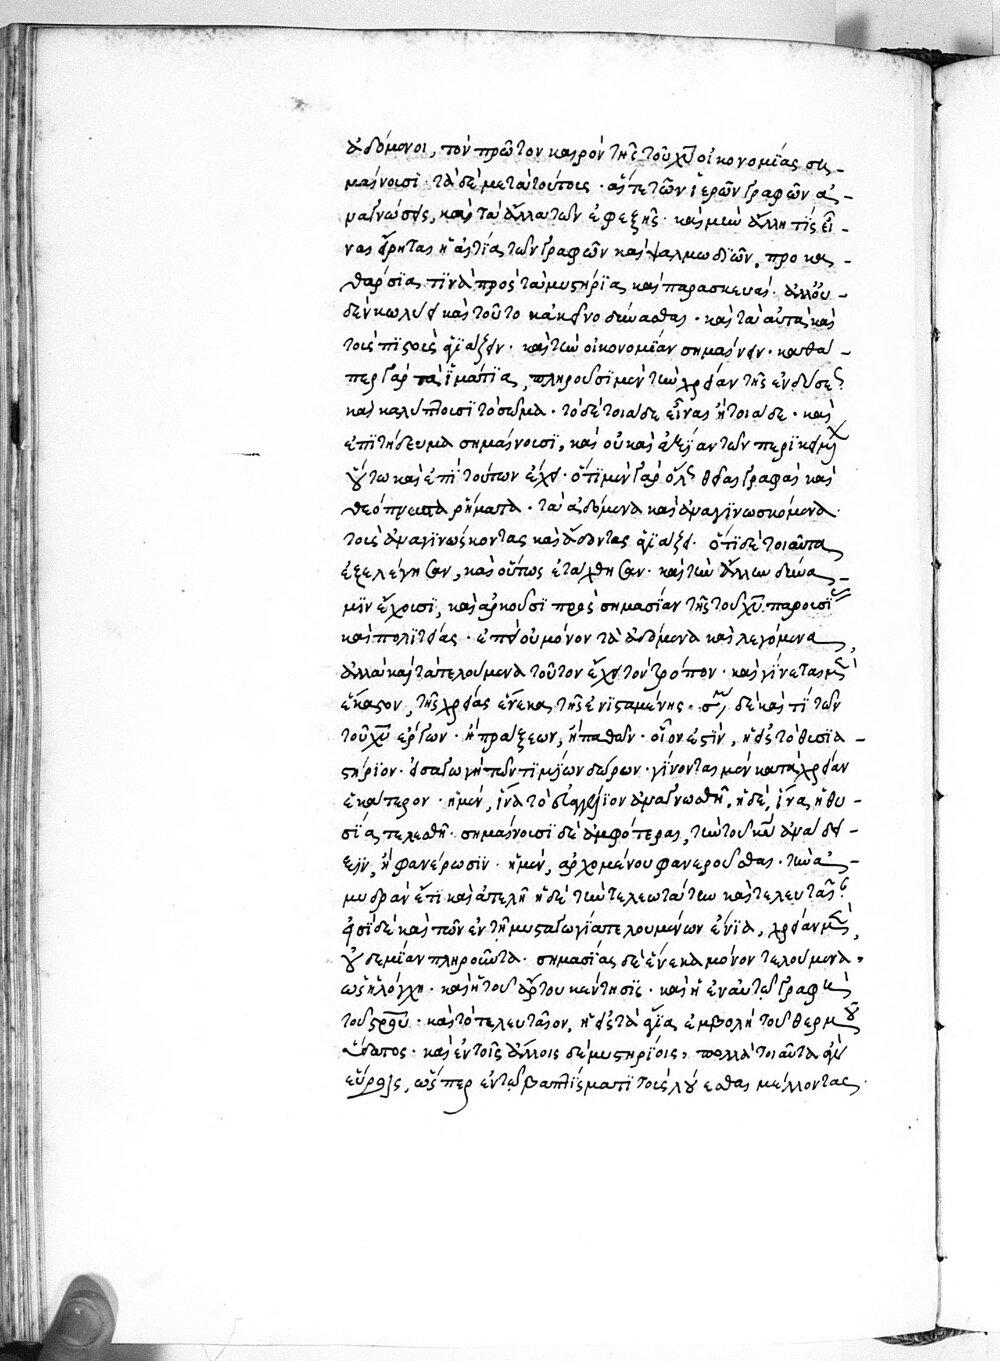 ἀδόμενοι, τὸν πρῶτον καιρὸν τῆς τοῦ χυ οἰκονομίας ση-
μαίνουσι· τὰ δὲ μετὰ τούτοις· αἵ τε τῶν ἱερῶν γραφῶν ἀ-
ναγνώσεις, καὶ τὰ ἄλλα τῶν ἐφεξῆς· καὶ μὴν ἄλλη τις εἶ-
ναι εἴρηται ἡ αἰτία τῶν γραφῶν καὶ ψαλμωδιῶν, προκα-
θάρσια τινὰ πρὸς τὰ μυστήρια καὶ παρασκευαί· ἀλλ' οὐ-
δὲν κωλύει καὶ τοῦτο κἀκεῖνο δύνασθαι· καὶ τὰ αὐτὰ καὶ
τοὺς πιστοὺς ἁγιάζειν· καὶ τὴν οἰκονομίαν σημαίνειν· καθά-
περ γὰρ τὰ ἱμάτια, πληροῦσι μὲν τὴν χρείαν τῆς ἐνδύσεως
καὶ καλύπτουσι τὸ σῶμα· τὸ δὲ τοιάδε εἶναι ἢ τοιάδε· καὶ
ἐπιτήδευμα σημαίνουσι, καὶ οὐ καὶ ἀξίαν τῶν περικειμέ
οὕτω καὶ ἐπὶ τούτων ἔχει· ὅτι μὲν γὰρ ὅλως θεῖαι γραφαὶ καὶ
θεόπνευστα ῥήματα· τὰ ἀδόμενα καὶ ἀναγινωσκόμενα
τοὺς ἀναγινώσκοντας καὶ ἄδοντας ἁγιάζει· ὅτι δὲ τοιαῦτα
ἐξελέγησαν, καὶ οὕτως ἐτάχθησαν· καὶ τὴν ἄλλην δύνα-
μιν ἔχουσι, καὶ ἀρκοῦσι πρὸς σημασίαν τῆς τοῦ χυ παρουσί
καὶ πολιτείας· ἐπεὶ οὐ μόνον τὰ ἀδόμενα καὶ λεγόμενα,
ἀλλὰ καὶ τὰ τελούμενα τοῦτον ἔχει τὸν τρόπον· καὶ γίνεται μὲν
ἕκαστον, τῆς χρείας ἕνεκα τῆς ἐνισταμένης· δὲ καί τι τῶν
τοῦ χυ ἔργων· ἢ πράξεων, ἢ παθῶν· οἷον ἐστιν, ἡ εἰς τὸ θυσια-
στήριον· εἰσαγωγὴ τῶν τιμίων δώρων· γίνονται μὲν κατὰ χρείαν
ἑκάτερον· ἡ μὲν, ἵνα τὸ εὐαγγέλιον ἀναγνωσθῆ, ἡ δὲ, ἵνα ἡ θυ-
σία τελεσθῆ· σημαίνουσι δὲ ἀμφότεραι, τὴν τοῦ κυ ἀνάδει-
ξιν, ἢ φανέρωσιν· ἡ μὲν, ἀρχομένου φανεροῦσθαι· τὴν ἀ-
μυδρὰν ἔτι καὶ ἀτελῆ ἡ δὲ τὴν τελεωτάτην καὶ τελευταί
εἰσὶ δὲ καὶ τῶν ἐν τῇ μυσταγωγία τελουμένων ἔνια, χρείαν μὲν,
οὐδεμίαν πληροῦντα· σημασίας δὲ ἕνεκα μόνον τελούμενα,
ὡς ἡ λόγχη· καὶ ἡ τοῦ ἄρτου κέντησις· καὶ ἡ ἐν αὐτῷ γραφὴ
τοῦ στρου· καὶ τὸ τελευταῖον, ἡ εἰς τὰ ἅγια ἐμβολὴ τοῦ θερμοῦ
ὕδατος· καὶ ἐν τοῖς ἄλλοις δὲ μυστηρίοις, πολλὰ τοιαῦτα ἂν
εὕροις, ὥσπερ ἐν τῷ βαπτίσματι τοὺς λούεσθαι μέλλοντας·